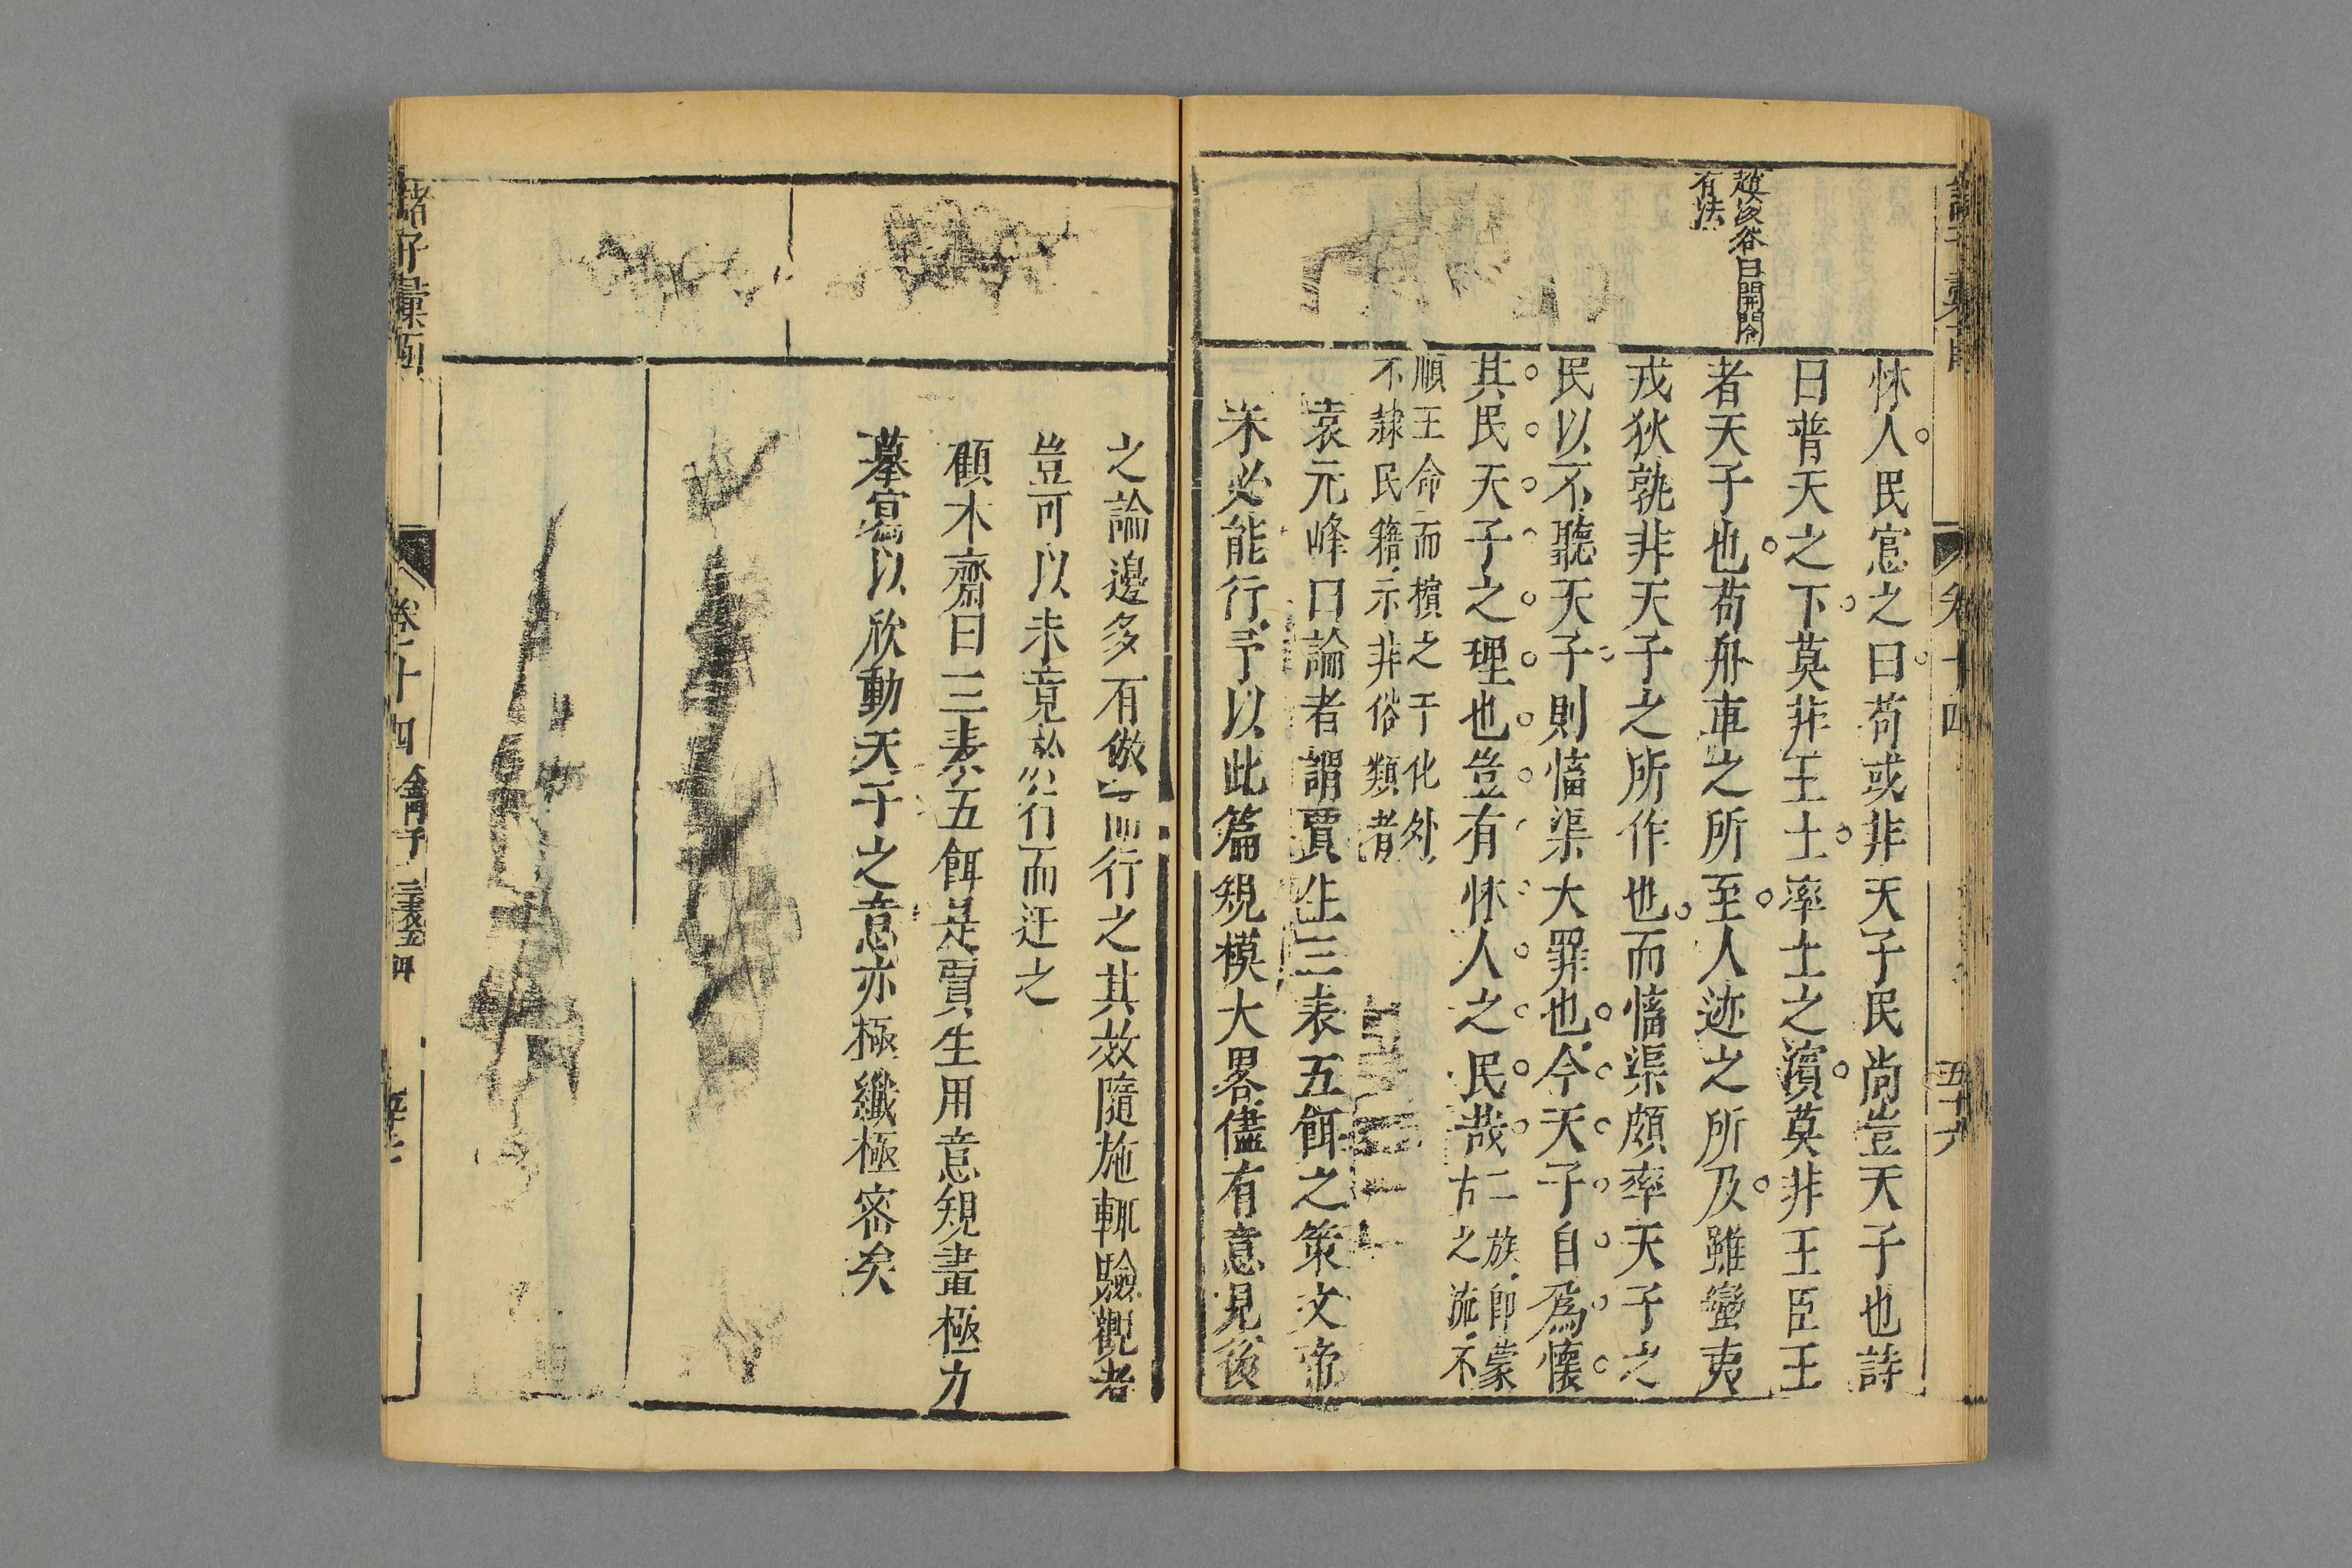 趙浚谷曰開闔
有法
怵人民官之曰苟或非天子民尚豈天子也詩
曰普天之下莫非王土率土之濱莫非王臣王
者天子也苟舟車之所至人迹之所及雖蠻夷
戎狄孰非天子之所作也而慉渠頗率天子之
民以不聽天子則慉渠大罪也今天子自爲懷
其民天子之理也豈有怵人之民哉二族卽蒙
古之流不
順王命而擯之于化外
不隷民籍示非俗類者
袁元峰曰論者謂賈生三表五餌之策文帝
未必能行予以此篇規模大畧儘有意見後
之論邊多有倣 而行之其效隨施輒驗觀者
豈可以未竟 行而迂之
顧木齋曰三表五餌是賈生用意規畫極力
摹寫以欣動天子之意亦極纖極密矣
諸子彙函
卷十四
五十六
諸子彙函
卷之十四